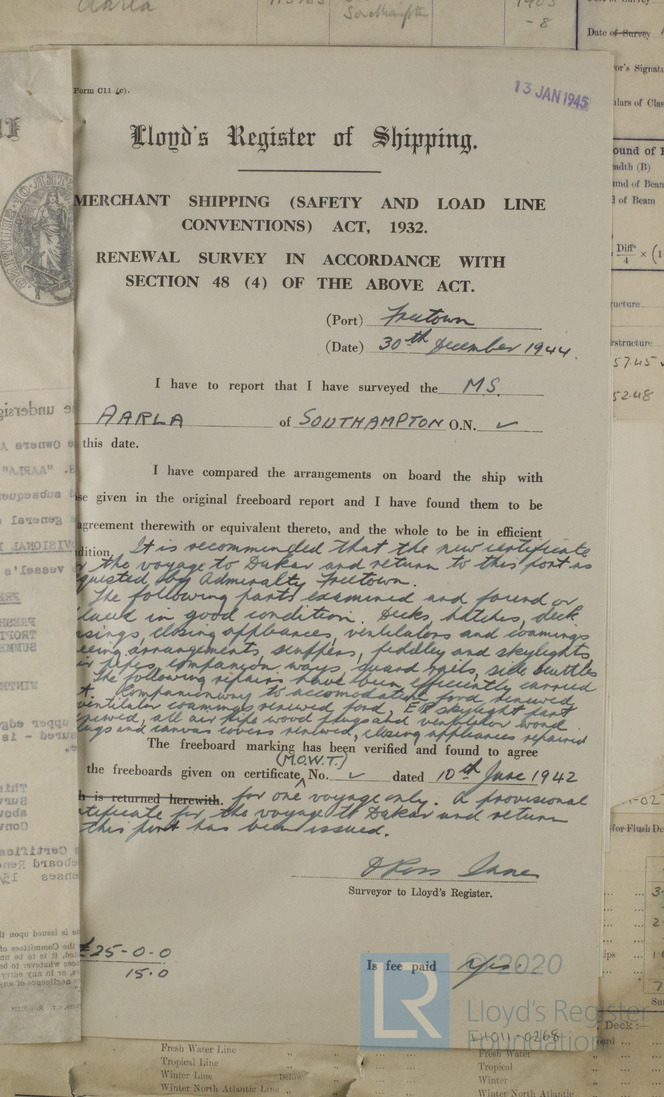 Aarla
Southampton
1903
-8
Date of Survey
Form C11 (c).
13 JAN 1945
Lloyd's Register of Shipping.
MERCHANT SHIPPING (SAFETY AND LOAD LINE
CONVENTIONS) ACT, 1932.
RENEWAL SURVEY IN ACCORDANCE WITH
SECTION 48 (4) OF THE ABOVE ACT.
(Port) Freetown
(Date) 30th December 1944.
I have to report that I have surveyed the MS.
AARLA of SOUTHAMPTON O.N. ✓
this date.
I have compared the arrangements on board the ship with
se given in the original freeboard report and I have found them to be
agreement therewith or equivalent thereto, and the whole to be in efficient
dition. It is recommended that the new certificate
the voyage to Dakar and return to this port as
quested by Admiralty Freetown.
The following parts examined and found or
placed in good condition. Decks, hatches, deck
casings, closing appliances, ventilators and coamings
eering arrangements, scuppers, fiddley and skylights,
air pipes, companion ways, guard rails, side scuttles
The following repairs have been efficiently carried
t. Companionway to accomodation ford renewed,
ventilator coamings renewed ford, ER skylight part
renewed, all air pipe wood plugs and ventilator wood
plugs and canvas covers renewed, closing appliances repaired
The freeboard marking has been verified and found to agree
(M.O.W.T.)
the freeboards given on certificate No. ✓ dated 10th June 1942
h is returned herewith. for one voyage only. A provisional
tificate for the voyage to Dakar and return
this port has been issued.
Surveyor to Lloyd's Register.
£25-0-0
15.0
Is fee paid yes.
© 2020
LR
Lloyd's Register
Foundation
Fresh Water Line
Tropical Line
Winter Line below
Winter North Atlantic Line
Deck:—
Fresh Water
Tropical
Winter
Winter North Atlantic